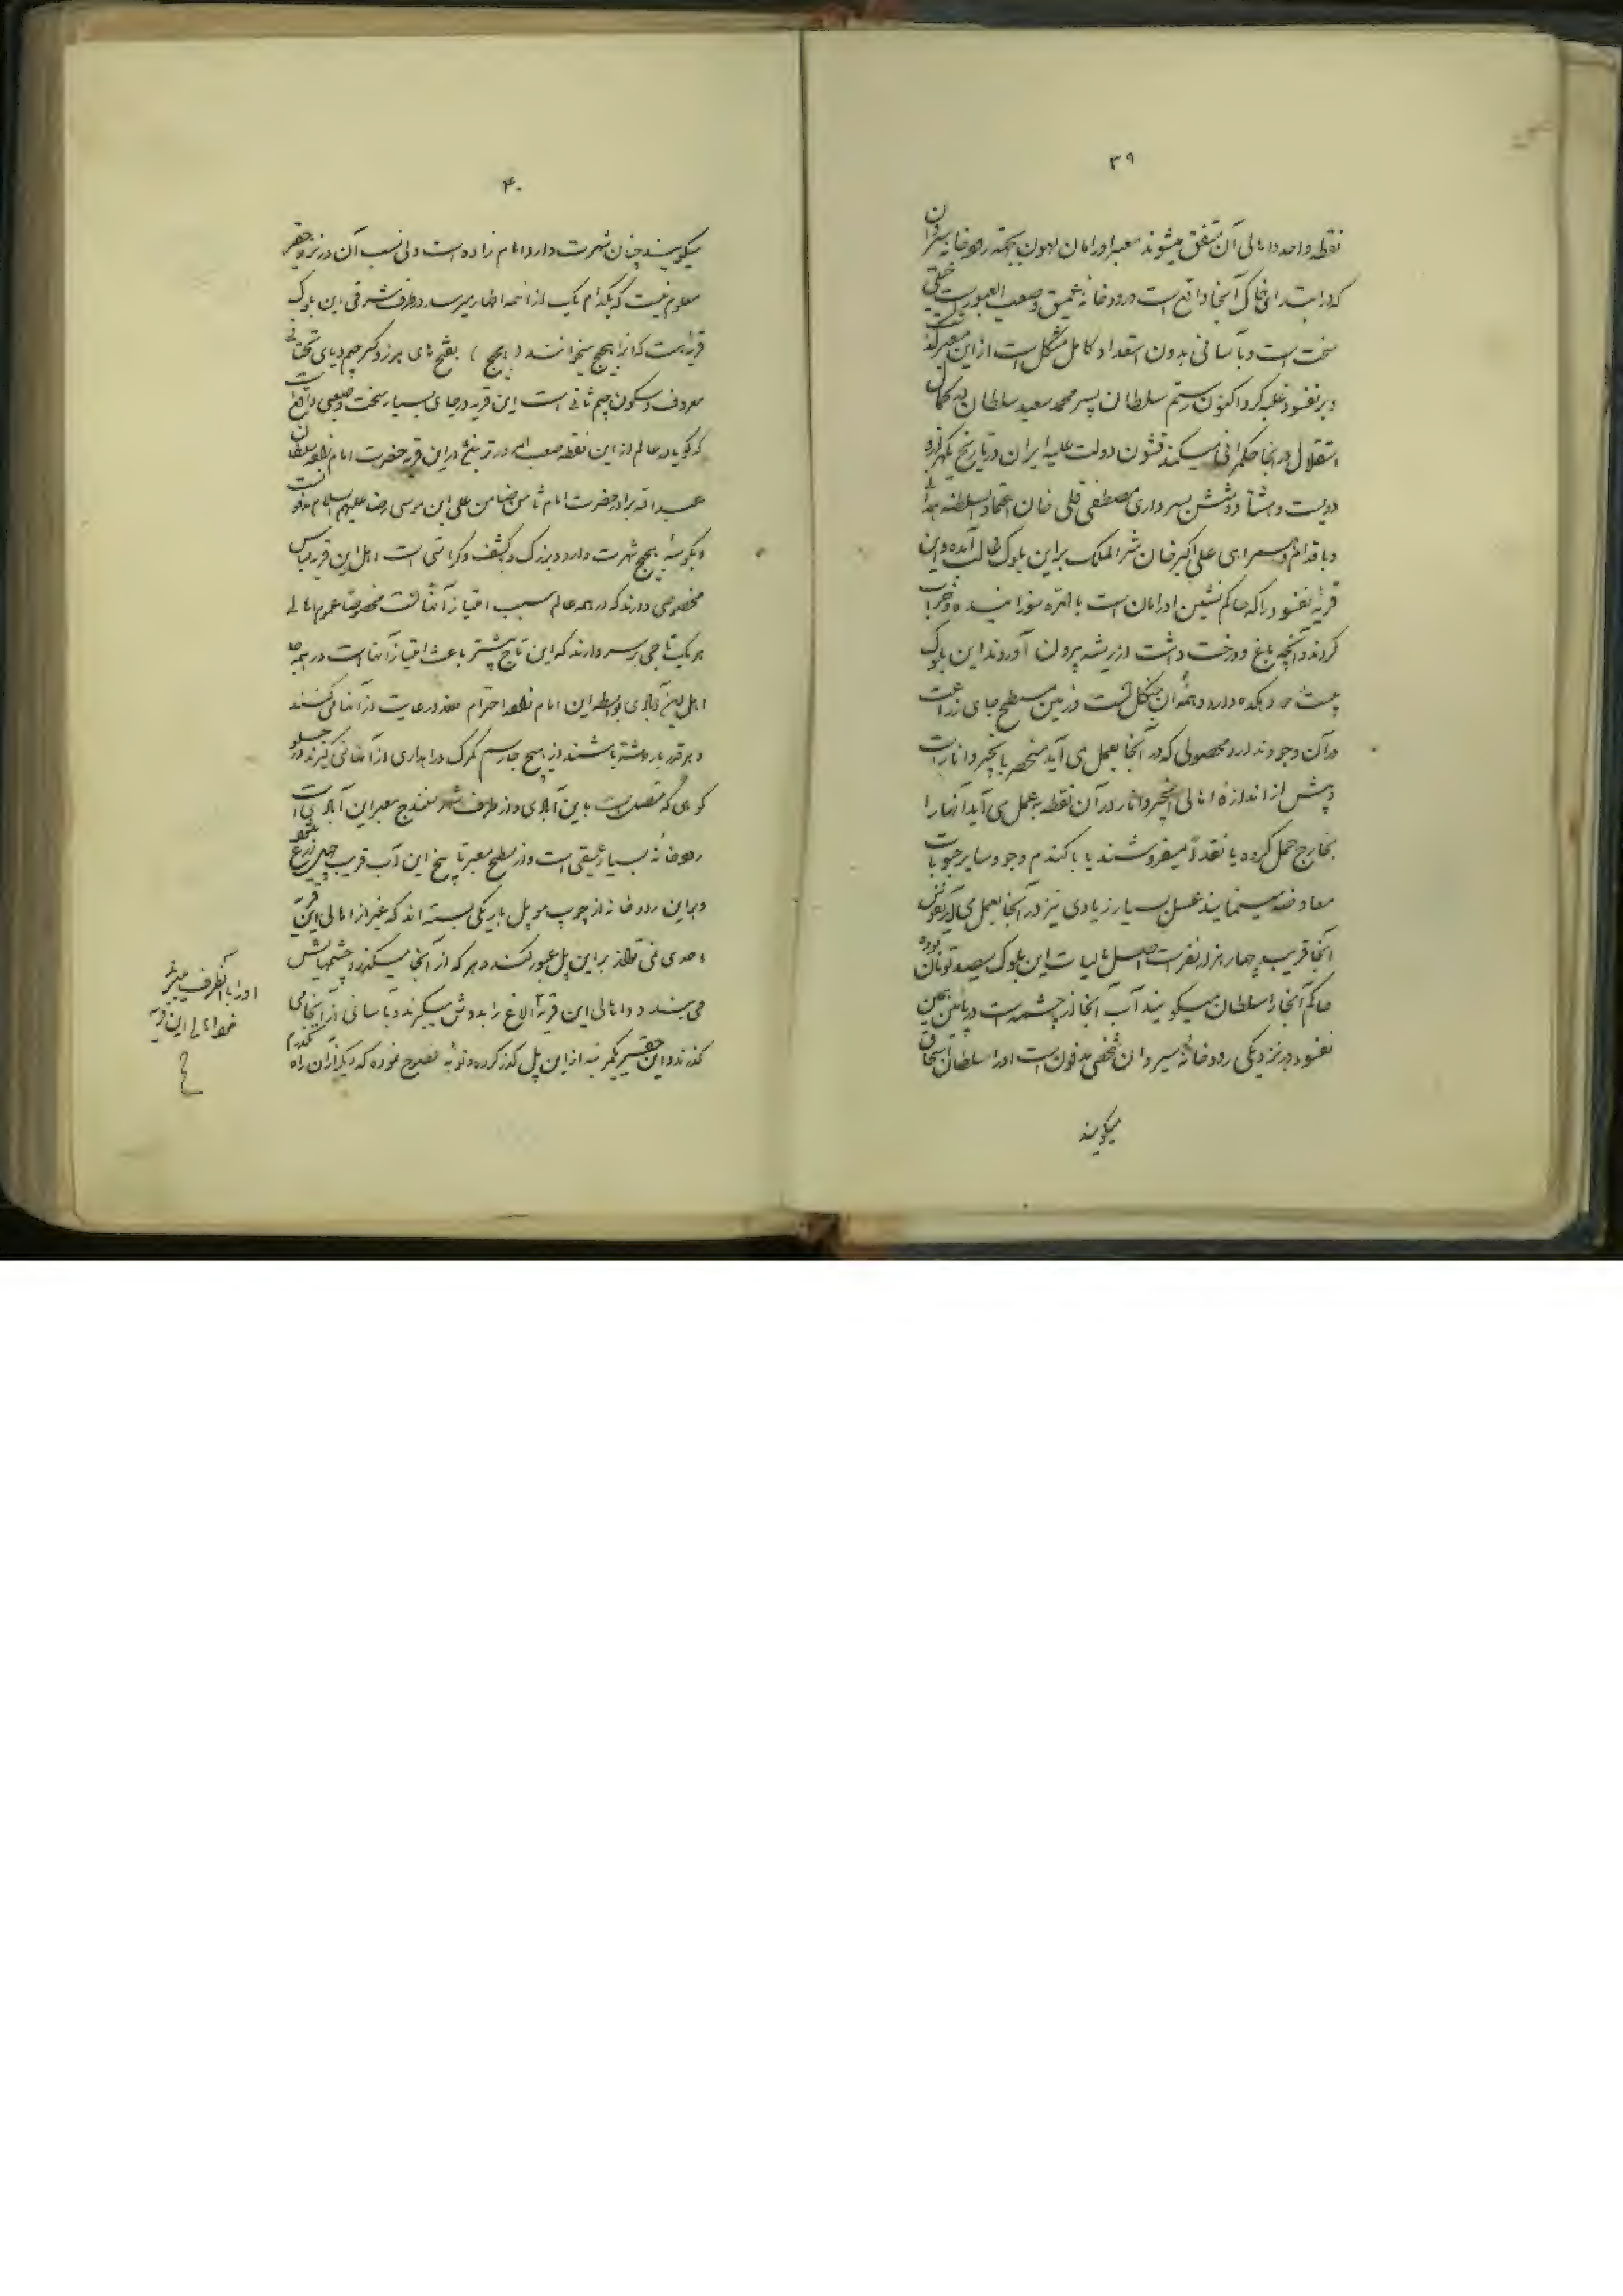 ۳۹
نقطه واحد و اهالی آن متفق میشوند معبر اورامان لهون بجهة رودخانه سیروان
که در ابتدای خاک آنجا واقع است و رودخانه عمیق و صعب العبور است خیلی
سخت است و بآسانی بدون استعداد کامل مشکل است از این معبر گذشت
و بر نفسود غلبه کرد اکنون رستم سلطان پسر محمد سعید سلطان در کمال
استقلال در آنجا حکمرانی میکند قشون دولت علیه ایران در تاریخ یکهزار و
دویست و هشتاد و شش بسرداری مصطفی قلی خان اعتماد السلطنه همدانی
و با اقدام و همراهی علی اکبر خان شرف الملک براین بلوک غالب آمده و این
قریه نفسود را که حاکم نشین اورامان است بالمره سوزانیده و خراب
کردند و آنچه باغ و درخت داشت از ریشه بیرون آوردند این بلوک
بیست دهکده دارد و همه آن جنگل است و زمین مسطح جای زراعت
در آن وجود ندارد محصولی که در آنجا بعمل می آید منحصر بانجیر و انار است
و بیش از اندازه اهالی انجیر و انار در آن نقطه به عمل می آید آنها را
بخارج حمل کرده یا نقداً میفروشند یا با گندم و جو و سایر حبوبات
معاوضه مینمایند عسل بسیار زیادی نیز در آنجا بعمل می آید نفوس
آنجا قریب چهار هزار نفر است اصل مالیات این بلوک سیصد تومان بوده
حاکم آنجا را سلطان میگویند آب آنجا از چشمه است در پائین همین
نفسود در نزدیکی رودخانه سیروان شخصی مدفون است او را سلطان اسحاق
میگویند
۴۰
میگویند چنان شهرت دارد امام زاده است ولی نسب آن در نزد حقیر
معلوم نیست که بکدام یک از ائمه اطهار میرسد در طرف شرقی این بلوک
قریه ایست که آنرا بجیج میخوانند ( بجیج ) بفتح بای ابجد و کسر جیم و یای تحتانی
معروف و سکون جیم ثانی است این قریه در جای بسیار سخت و صعبی واقع است
که گویا در عالم از این نقطه صعب تر نیست در این قریه حضرت امام زاده سلطان
عبید الله برادر حضرت امام ثامن ضامن علی ابن موسی رضا علیهم السلام مدفونست
و بکوسه بجیج شهرت دارد و بزرگ و کشف و کراماتی است اهل این قریه لباس
مخصوصی دارند که در همه عالم سبب امتیاز آنهاست مخصوصاً عموم اهالی
هر یک تاجی بر سر دارند که این تاج بیشتر باعث امتیاز آنهاست در همه جا
اهل این آبادی بواسطه این امام زاده احترام و رعایت از آنها میکنند
و هر قدر بار داشته باشند از هیچ جا رسم گمرک و راهداری از آنها نمی گیرند در جلو
کوهی که متصل است باین آبادی و از طرف شهر سنندج معبر این آبادی است
رودخانه بسیار عمیقی است و از سطح معبر تا بیخ این آب قریب چهل زرع میشود
و براین رودخانه از چوب مو پل باریکی بسته اند که غیر از اهالی این قریه
احدی نمی تواند براین پل عبور کند و هر که از آنجا میگذرد چشمهایش
می بندد و اهالی این قریه الاغ را بدوش میگیرند و بآسانی از آنجا می
گذرند و این حقیر یکمرتبه از این پل گذر کرده و توبه نصوح نموده که دیگر از آن راه نگذرم
او را بآنطرف میبرند
خود اهالی این قریه